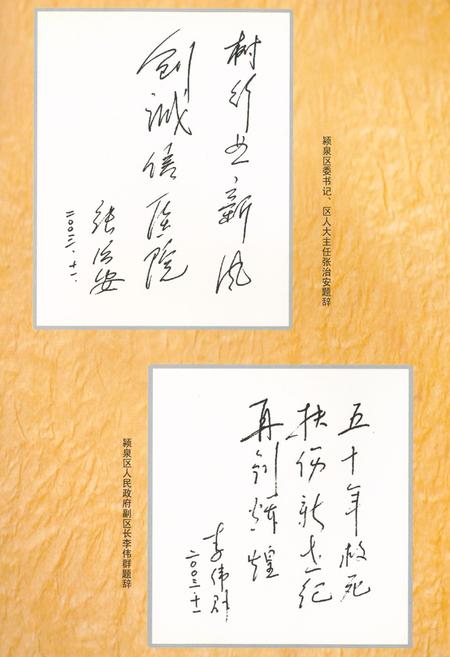 树行业新风
创诚信医院
张治安
二〇〇三.十一.
颍泉区委书记、区人大主任张治安题辞
五十年救死
扶伤新世纪
再创辉煌
李伟群
二〇〇三.十一
颍泉区人民政府副区长李伟群题辞